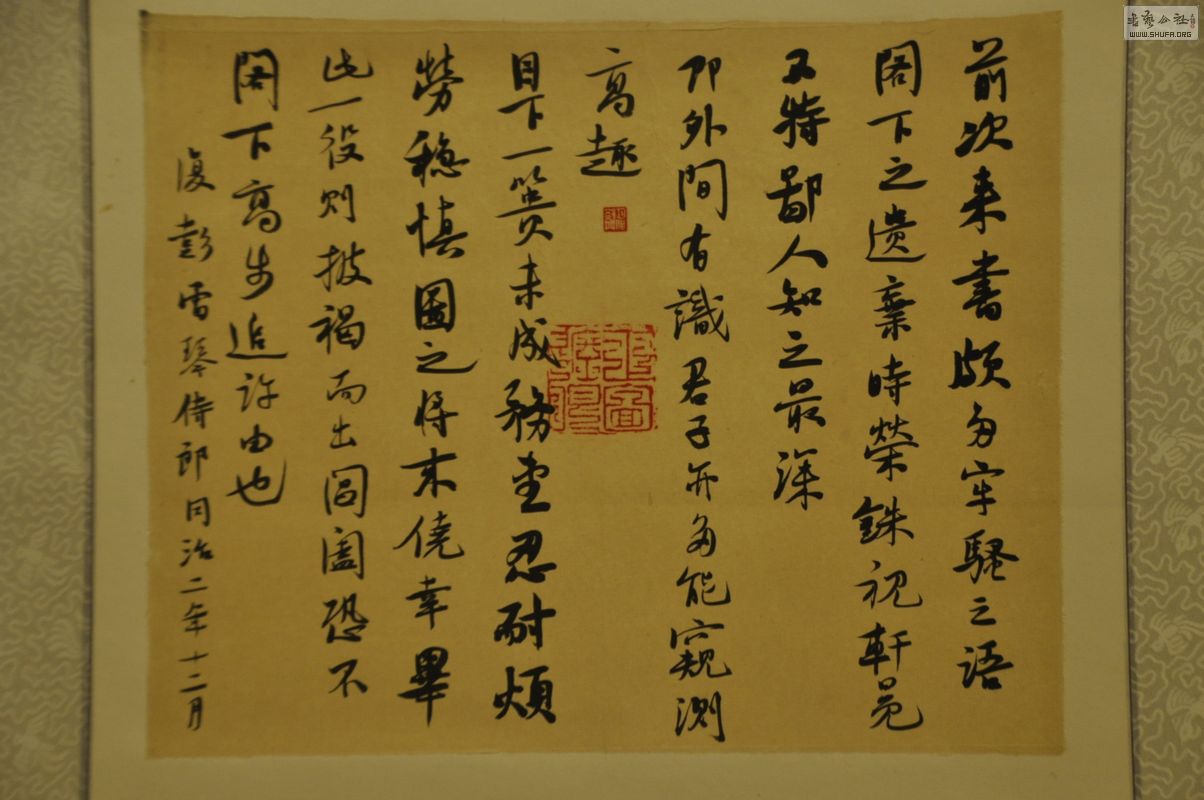 前次来書頗多牢騷之語
閣下之遺棄時榮銖視軒冕
不特鄙人知之最深
即外間有識君子亦多能窺測
高趣
目下一簣未成務望忍耐煩
勞穩慎圖之将来僥幸畢
此一役則披褐而出閶闔恐不
閣下高步追許由也
復彭雪琴侍郎同治二年十二月
書藝公社
WWW.SHUFA.ORG